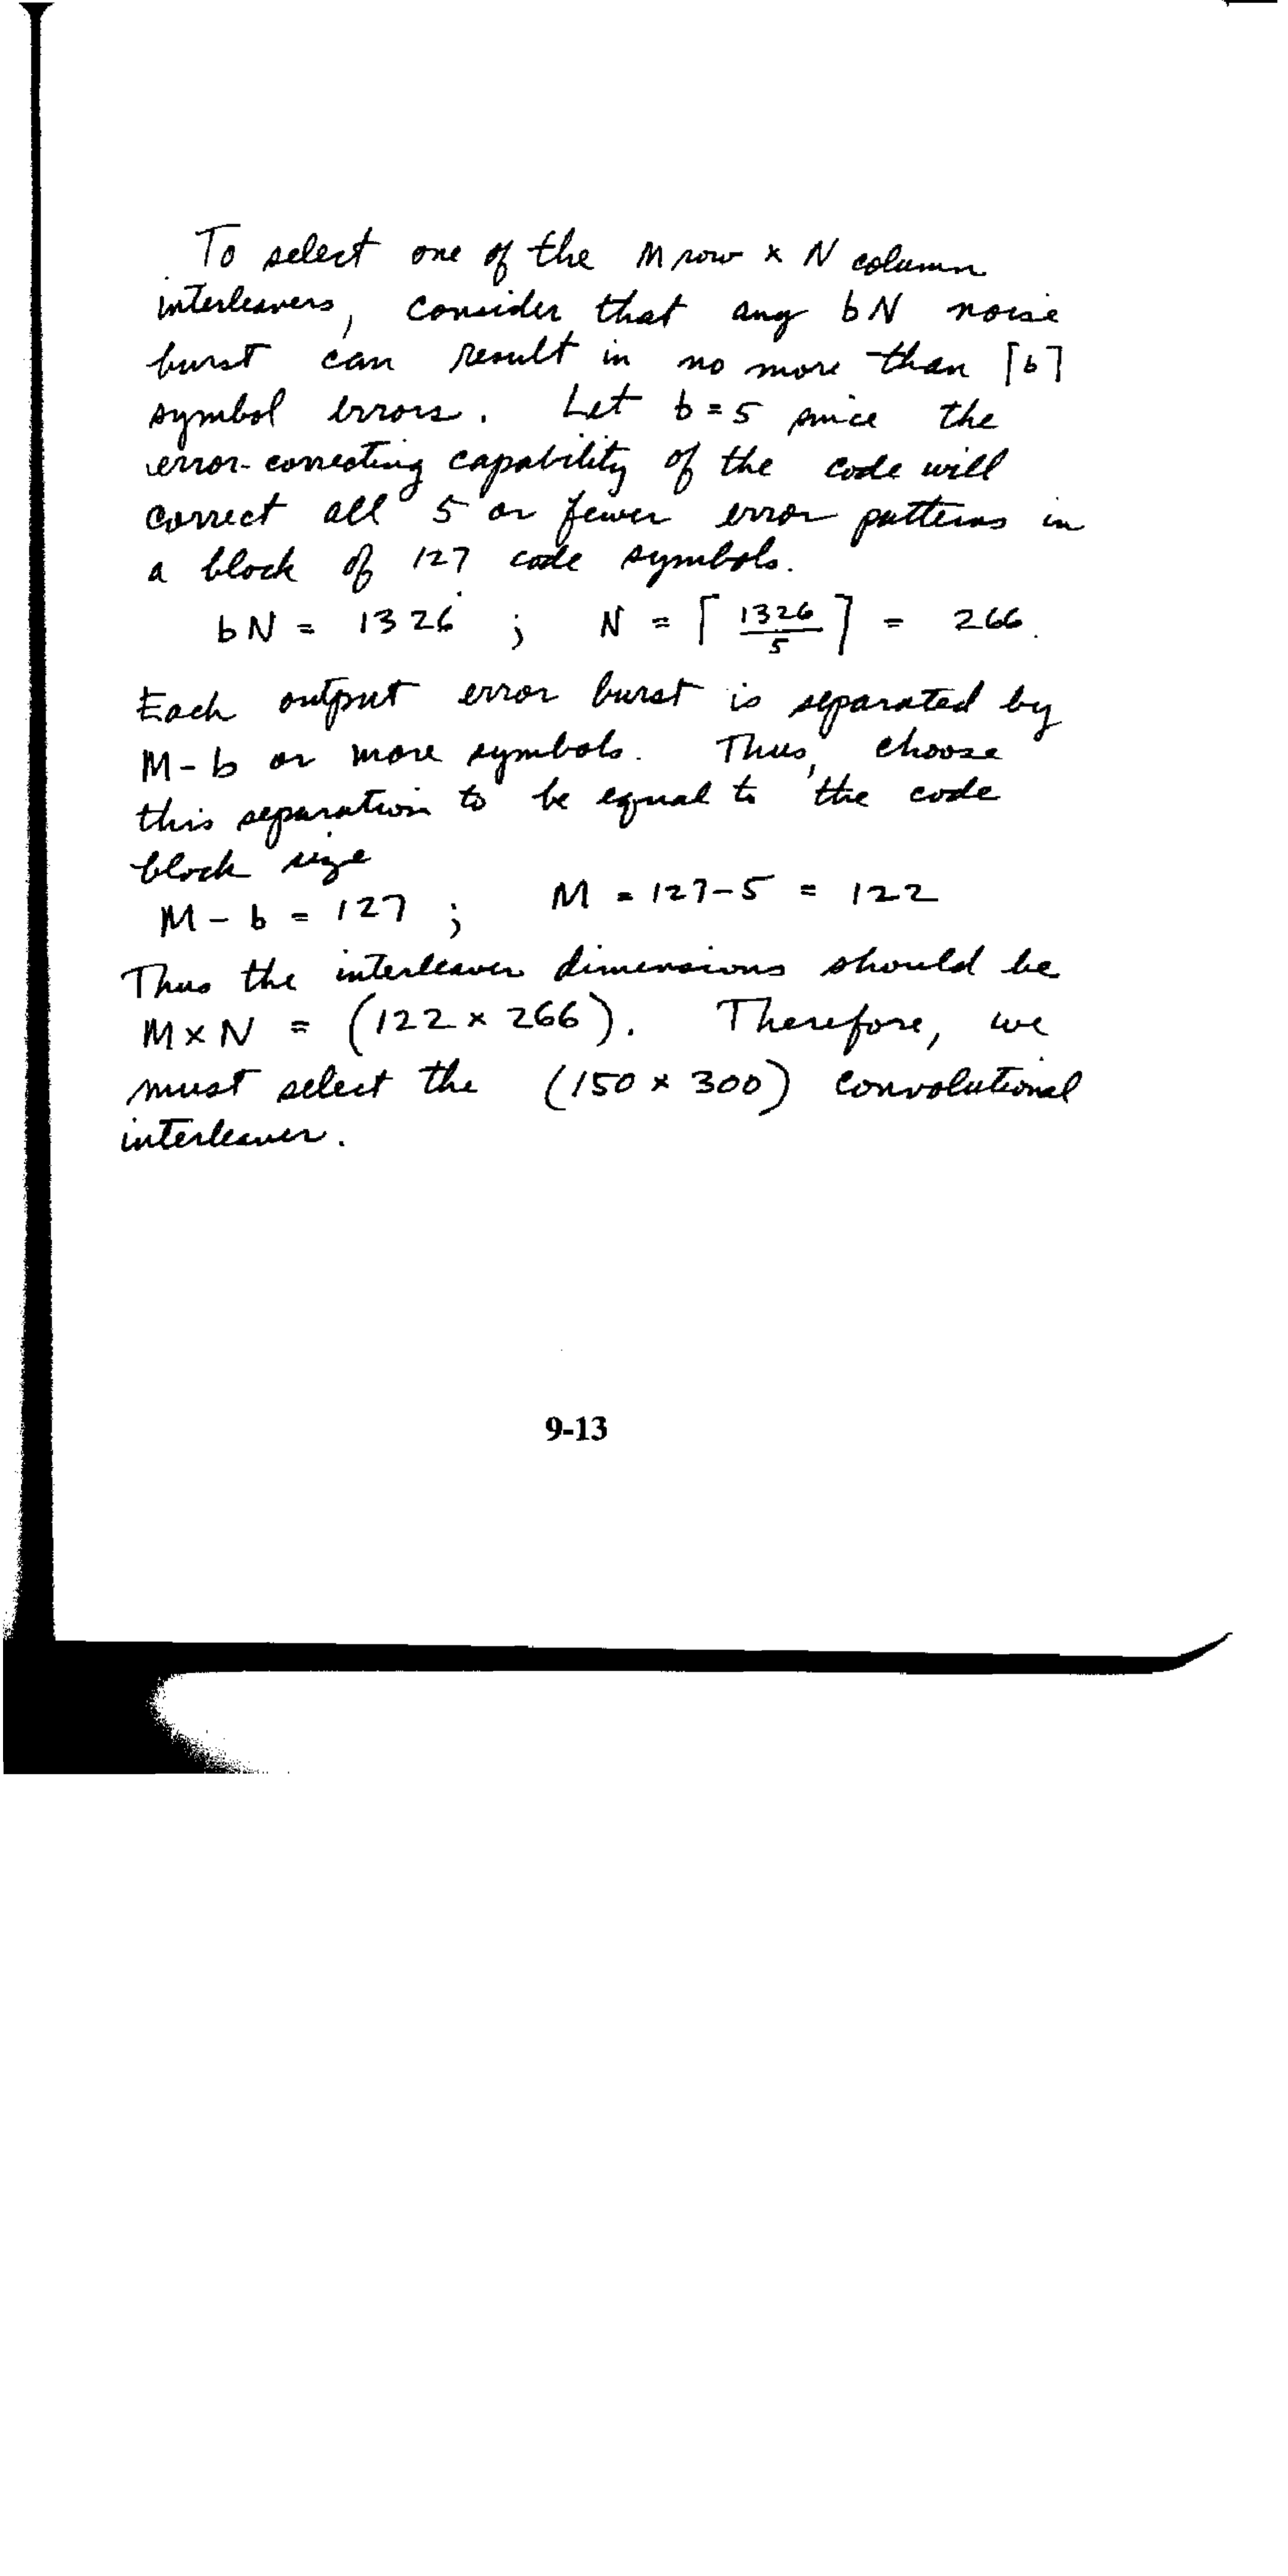 To select one of the M row × N column
interleavers, consider that any bN noise
burst can result in no more than ⌈b⌉
symbol errors. Let b = 5 since the
error-correcting capability of the code will
correct all 5 or fewer error patterns in
a block of 127 code symbols.
bN = 1326 ; N = ⌈1326/5⌉ = 266.
Each output error burst is separated by
M - b or more symbols. Thus, choose
this separation to be equal to the code
block size
M - b = 127 ; M = 127-5 = 122
Thus the interleaver dimensions should be
M×N = (122 × 266). Therefore, we
must select the (150 × 300) convolutional
interleaver.
9-13